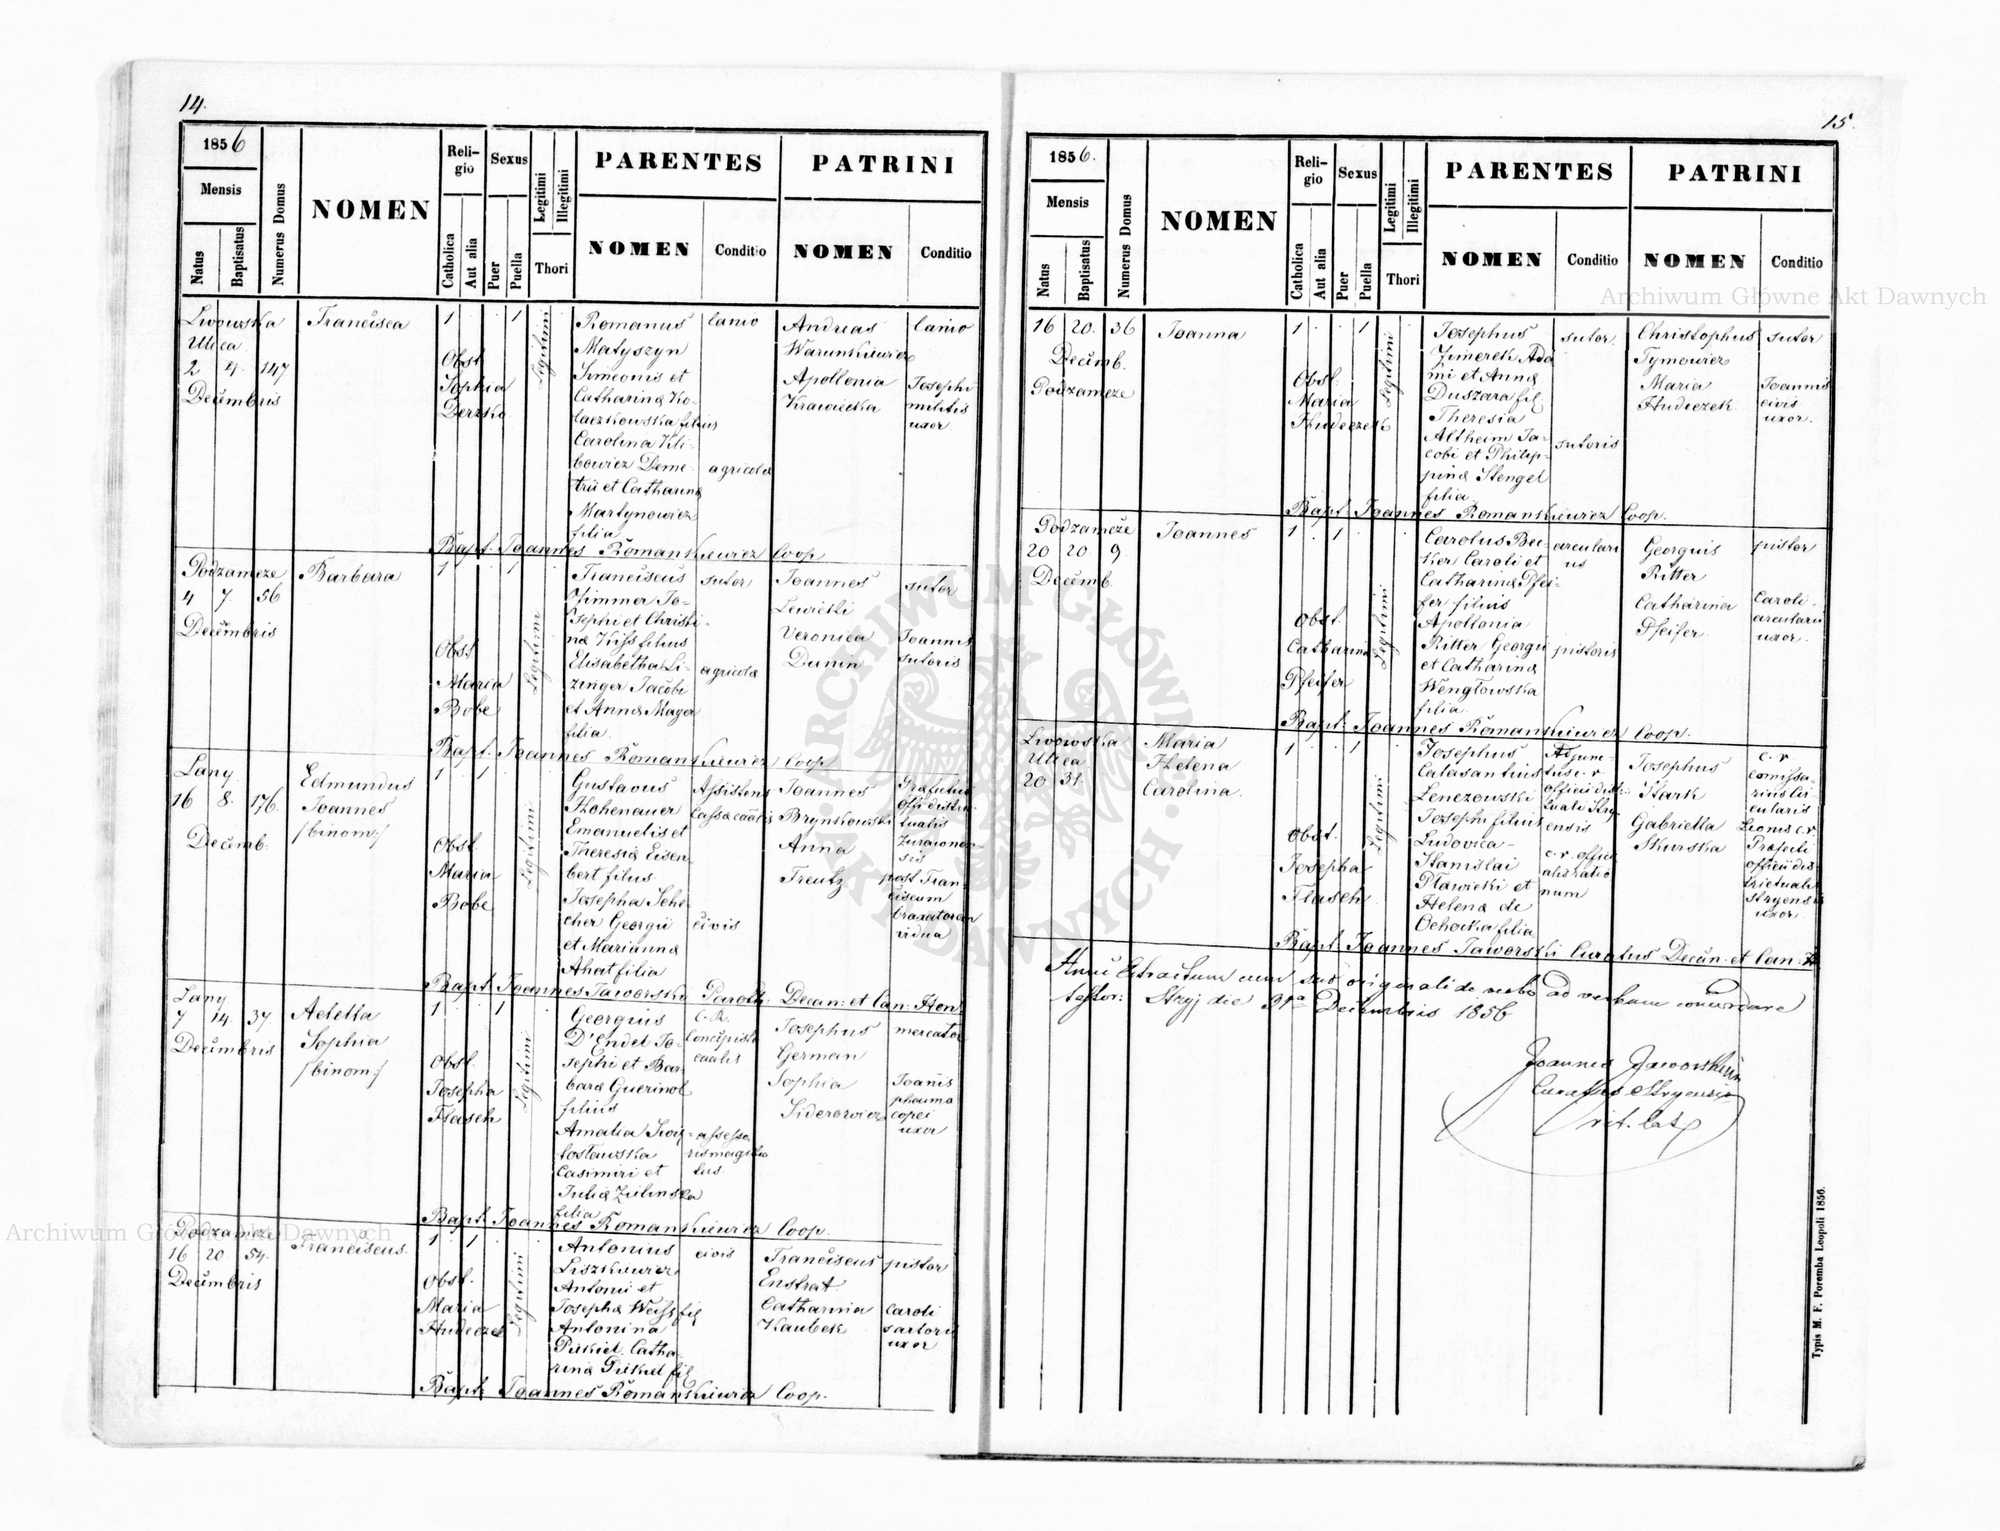 14.
1856
Mensis
Natus
Baptisatus
Numerus Domus
NOMEN
Reli-
gio
Catholica
Aut alia
Sexus
Puer
Puella
Legitimi
Illegitimi
Thori
PARENTES
NOMEN
Conditio
PATRINI
NOMEN
Conditio
Lwowska
Ulica
2 4. 147
Decembris
Francisca
1 . . 1
Obst.
Sophia
Derzko
Legitimi
Romanus
Matyszyn
Simeonis et
Catharina Ko-
laczkowska filius
Carolina Kli-
bowicz Deme-
trii et Catharina
Martynowicz
filia
lanio
agricola
Andreas
Warunkiewicz
Apollonia
Krawiecka
lanio
Josephi
militis
uxor
Bapt. Joannes Romankiewicz Coop
Podzamcze
4 7. 56
Decembris
Barbara
1 . . 1
Obst.
Maria
Bobe
Legitimi
Franciscus
Zimmer Jo-
sephi et Christi-
na Kiss filius
Elisabetha Li-
zinger Jacobi
et Anna Mayer
filia
sutor
agricola
Joannes
Lewicki
Veronica
Dunin
sutor
Joannis
sutoris
Bapt. Joannes Romankiewicz Coop
Lany
16 8. 176.
Decemb.
Edmundus
Joannes
/binom:/
1 . 1
Obst.
Maria
Bobe
Legitimi
Gustavus
Hohenauer
Emanuelis et
Theresia Eisen-
bert filius
Josepha Sche-
cher Georgii
et Marianna
Ahat filia
Assistens
civis
Joannes
Brynkowski
Anna
Treutz
post Fran-
ciscum
vidua
Bapt. Joannes Jaworski Paroch: Decan: et Can: Hon
Lany
7 14. 37.
Decembris
Adella
Sophia
/binom:/
1 . . 1
Obst.
Josepha
Flasch
Legitimi
Georgius
D'Endel Jo-
sephi et Bar-
bara Guerinot
filius
Amalia Swię-
tosławska
Casimiri et
Julia Zielinska
filia
Josephus
German
Sophia
Siderowicz
mercator
Joanis
pharma
copei
uxor
Bapt: Joannes Romankiewicz Coop.
Podzamcze
16 20 54.
Decembris
Franciscus.
1 . 1
Obst.
Maria
Hudeczek
Legitimi
Antonius
Liszkiewicz
Antonii et
Josepha Weiss fil
Antonina
Pickiel. Catha-
rina Pickiel fil
civis
Franciscus
Enstrat
Catharina
Kaubek
pistor
Caroli
sartoris
uxor
Bapt: Joannes Romankiewicz Coop.
15.
1856.
Mensis
Natus
Baptisatus
Numerus Domus
NOMEN
Reli-
gio
Catholica
Aut alia
Sexus
Puer
Puella
Legitimi
Illegitimi
Thori
PARENTES
NOMEN
Conditio
PATRINI
NOMEN
Conditio
16 20. 36
Decemb.
Podzamcze
Joanna
1 . . 1
Obst.
Maria
Hudeczek
Legitimi
Josephus
Zimerek Ada-
mi et Anna
Duszara fil
Theresia
Altheim Ja-
cobi et Philip-
pina Stengel
filia
sutor
sutoris
Christophus
Tymowicz
Maria
Hudeczek
sutor
Joannis
civis
uxor.
Bapt. Joannes Romankiewicz Coop.
Podzamcze
20 20 9.
Decemb.
Joannes
1 . 1
Obst.
Catharina
Pfeifer
Legitimi
Carolus Bec-
ker Caroli et
Catharina Pfei-
fer filius
Apollonia
Ritter Georgii
et Catharina
Wengłowska
filia
arculari
us
pistoris
Georgius
Ritter
Catharina
Pfeifer
pistor
Caroli
arcularii
uxor.
Bapt: Joannes Romankiewicz Coop.
Lwowska
Ulica
20 31.
Maria
Helena
Carolina.
1 . . 1
Obst.
Josepha
Flasch
Legitimi
Josephus
Calasantius
Lenczowski
Josephi filius
Ludovica
Stanislai
Pławicki et
Helena de
Ochocka filia
Josephus
Stark
Gabriella
Skurska
c. r
comissa-
rius cir
cularis
Leonis c.r
Praefecti
officii dis-
trictualis
stryensis
uxor.
Bapt. Joannes Jaworski Curatus Decan. et Can: H
Hunc Extractum cum suo originali de verbo ad verbum concordare
testor: Stryj die 31a Decembris 1856
Joannes Jaworski
Curatus Stryensis
rit. lat
Typis M. F. Poremba Leopoli 1856.
Archiwum Główne Akt Dawnych
Archiwum Główne Akt Dawnych
ARCHIWUM GŁÓWNE AKT DAWNYCH